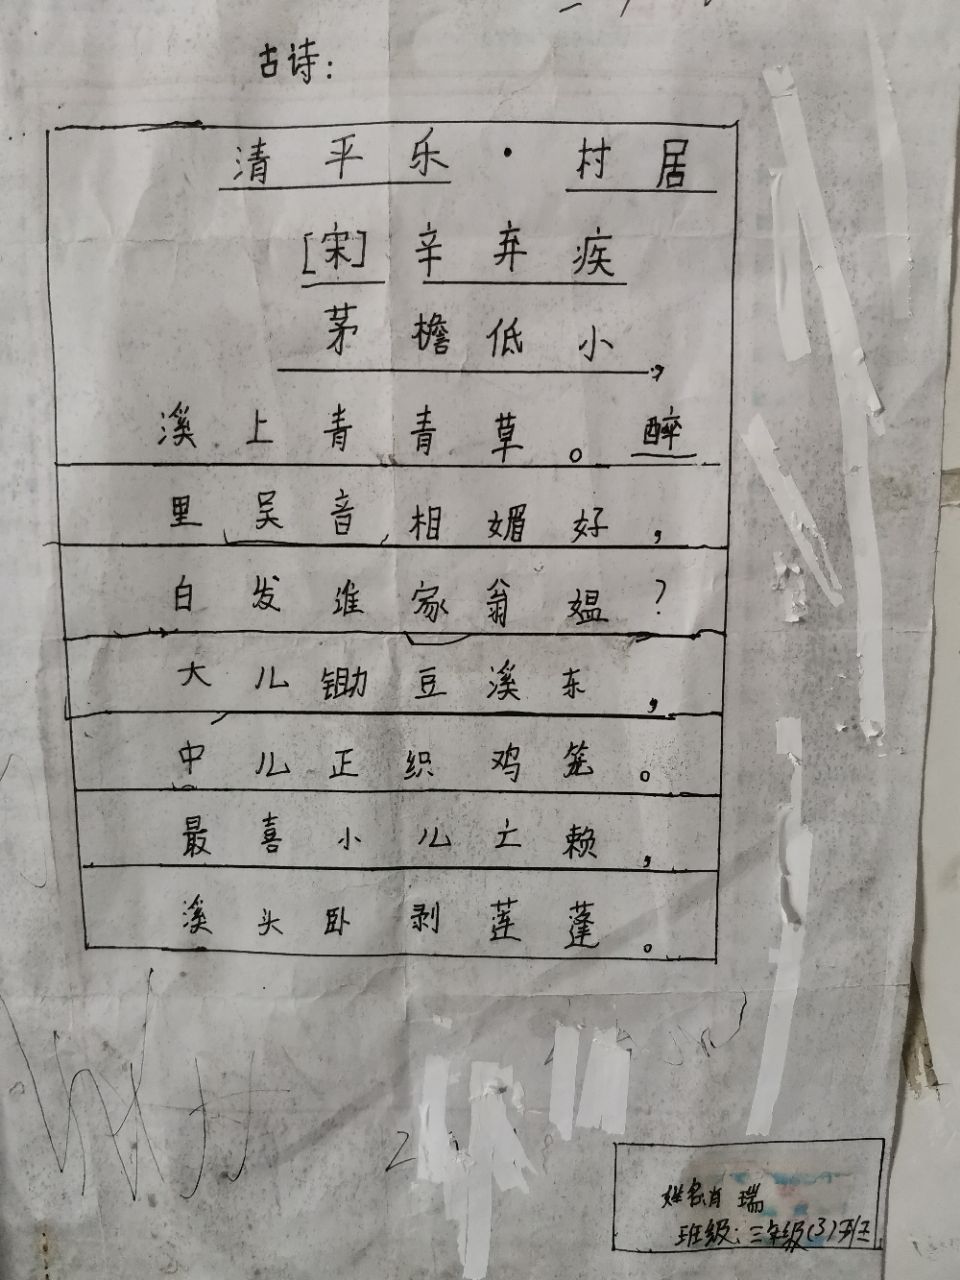 古诗:
清平乐·村居
[宋]辛弃疾
茅檐低小,
溪上青青草。醉
里吴音相媚好,
白发谁家翁媪?
大儿锄豆溪东,
中儿正织鸡笼。
最喜小儿亡赖,
溪头卧剥莲蓬。
姓名:肖瑞
班级:三年级(3)班